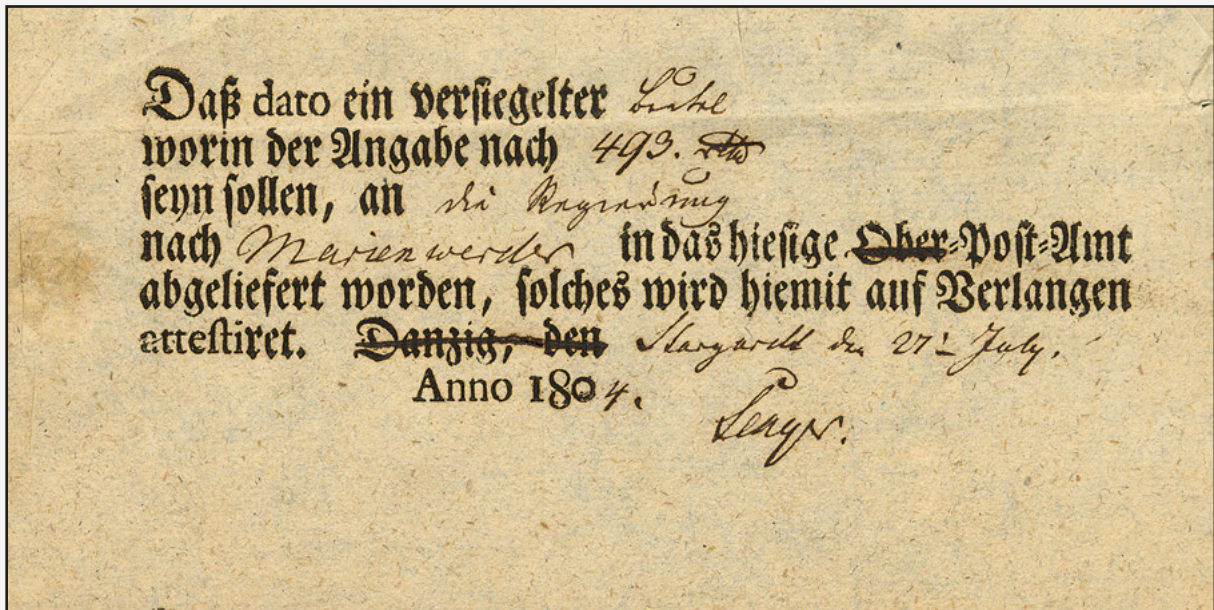 Daß dato ein versiegelter Beutel
worin der Angabe nach 493. rtlr
seyn sollen, an die Regierung
nach Marienwerder in das hiesige Ober-Post-Amt
abgeliefert worden, solches wird hiemit auf Verlangen
attestiret. Danzig, den Stargardt den 27t July.
Anno 1804.